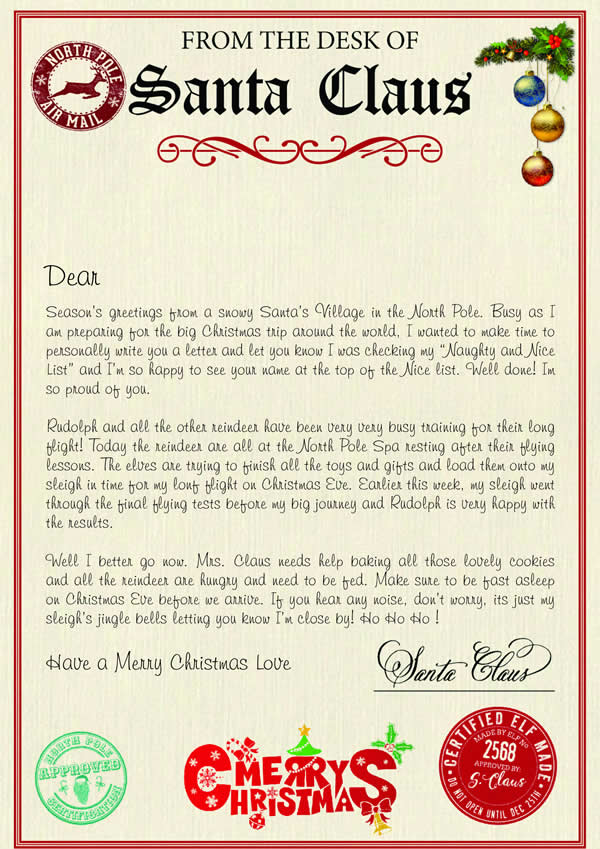 FROM THE DESK OF
Santa Claus
NORTH POLE
AIR MAIL
Dear
Season's greetings from a snowy Santa's Village in the North Pole. Busy as I
am preparing for the big Christmas trip around the world, I wanted to make time to
personally write you a letter and let you know I was checking my "Naughty and Nice
List" and I'm so happy to see your name at the top of the Nice list. Well done! Im
so proud of you.
Rudolph and all the other reindeer have been very very busy training for their long
flight! Today the reindeer are all at the North Pole Spa resting after their flying
lessons. The elves are trying to finish all the toys and gifts and load them onto my
sleigh in time for my long flight on Christmas Eve. Earlier this week, my sleigh went
through the final flying tests before my big journey and Rudolph is very happy with
the results.
Well I better go now. Mrs. Claus needs help baking all those lovely cookies
and all the reindeer are hungry and need to be fed. Make sure to be fast asleep
on Christmas Eve before we arrive. If you hear any noise, don't worry, its just my
sleigh's jingle bells letting you know I'm close by! Ho Ho Ho !
Have a Merry Christmas Love
Santa Claus
NORTH POLE
APPROVED
CERTIFICATION
MERRY
CHRISTMAS
CERTIFIED ELF MADE
MADE BY ELF No
2568
APPROVED BY:
S. Claus
DO NOT OPEN UNTIL DEC 25TH